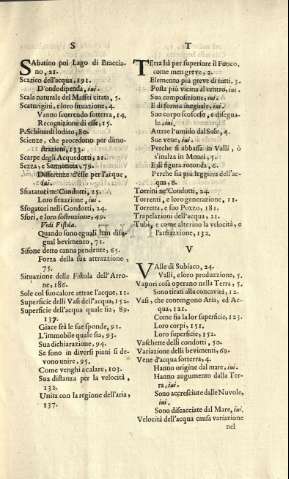 S
SAbatino poi Lago di Bracciano, 21.
Scarico dell'acqua, 191.
D'onde dipenda, ivi.
Scale naturale del Maffei citata, 5.
Scaturigini, e loro situazione, 4.
Vanno scorrendo sotterra, 14.
Recognizione di esse, 15.
P. Schinardi lodino, 80.
Scienze, che procedono per dimostrazioni, 133.
Scarpe degli Acquidotti, 11.
Differenza d'esse per l'acque,
Sfiatatori ne' Condotti, 25.
Loro situazione, ivi.
Sfogatori nelli Condotti, 24.
Sfori, e loro 49.
Vedi Fistola.
Quando sono eguali han disugual bevimento, 71.
Sifone detto canna pendente, 65.
Forta della sua attrazione,
75.
Situazione della Fistula dell'Arrone, 186.
Sole col suo calore attrae l'acque, 11.
Superficie delli Vasi dell'acqua, 152.
Superficie dell'acqua quale sia, 89.
137.
Giace frà le sue sponde, 91.
L'immobile quale sia, 93.
Sua dichiarazione, 94.
Se sono in diversi piani si devono unire, 95.
Come venghi a calare, 103.
Sua distanza per la velocità,
132.
Unita con la regione dell'aria,
137.
T
TErra stà per superiore il Fuoco,
come men greve, 2.
Elemento più greve di tutti, 3.
Posta più vicina al centro, ivi.
Sua composizione, ivi.
E di forma ineguale, ivi.
Suo corpo scosceso, e disegualе, ivi.
Attrae l'umido dal Sole, 4.
Sue vene, ivi.
Perche si abbassi in Valli, ò
s'inalza in Monti, 5.
E di figura rotonda, 6.
Perche sia più leggiera dell'acqua, 8.
Torrini ne' Condotti, 24.
Torrenti, e loro generazione, 11.
Torretta, e suo Pozzo, 181.
Trapelazioni dell'acqua, 21.
Tubi, e come alterino la velocità, e
l'attrazione, 132.
V
VAlle di Subiaco, 24.
Valli, e loro produzione, 5.
Vapori cosa operano nella Terra, 5.
Sono tirati alla concavità, 12.
Vasi, che contengono Aria, ed Acqua, 121.
Come sia la lor superficie, 123.
Loro corpi, 151.
Loro superficie, 152.
Vaschette delli condotti, 50.
Variazione delli bevimenti, 69.
Vene d'acqua sotterra, 4.
Hanno origine dal mare, ivi.
Hanno augumento dalla Terra, ivi.
Sono accresciute dalle Nuvole,
ivi.
Sono discacciate dal Mare, ivi.
Velocità dell'acqua causa variazione
nel